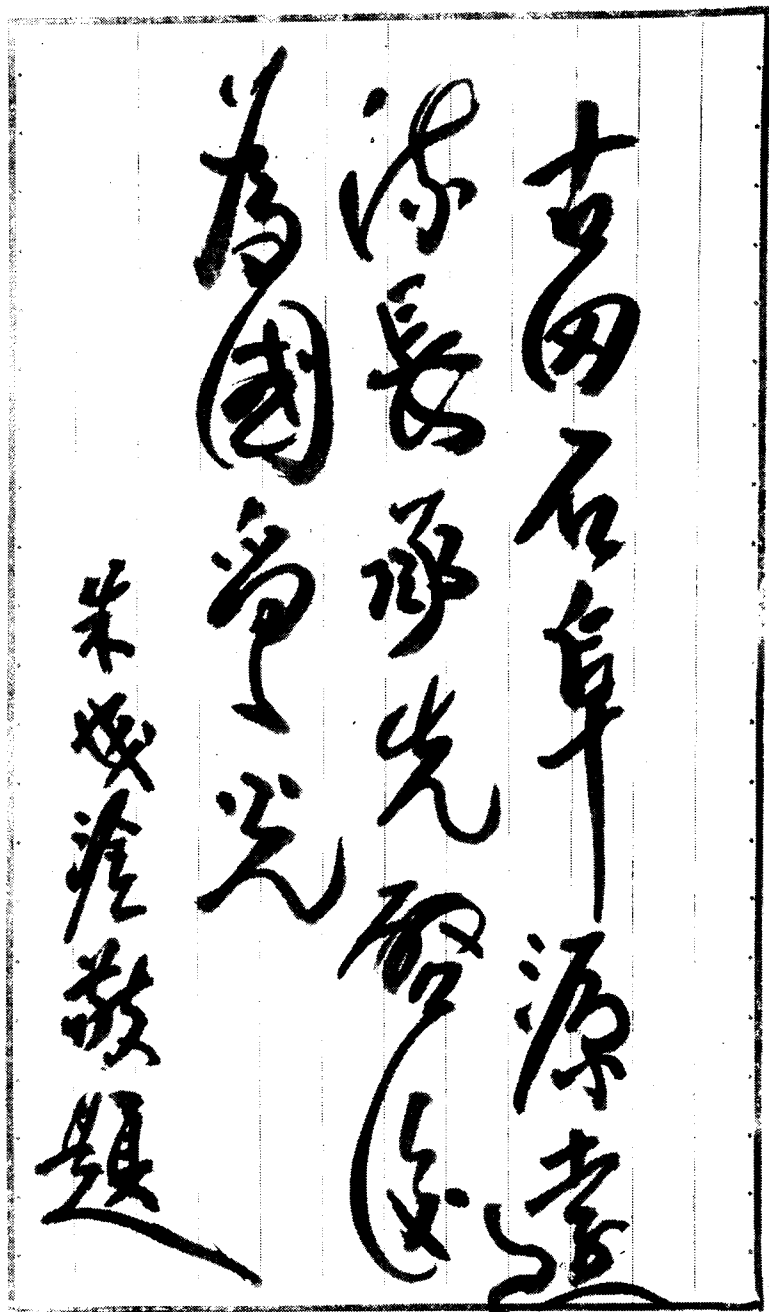 古田石阜源遠
流長承先啓後
為國爭光
朱成淦敬題